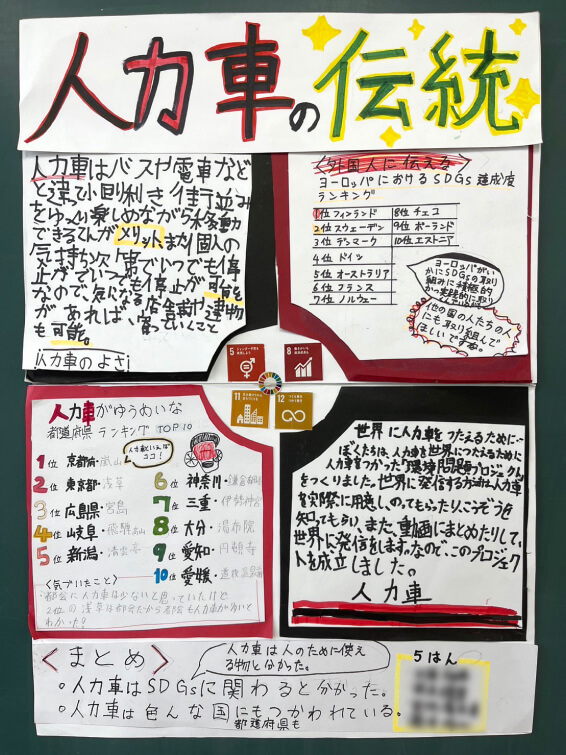 人力車の伝統
人力車はバスや電車など
と違い小回り利き街並み
をゆっくり楽しめながら移動
できるてんがメリットまた1個人の
気持ち次第でいつでも停
止がでいつでも停止が可能
なので、気になる店舗青丁建物
があれば、寄っていくこと
も可能。
人力車のよさ
<外国人に伝える>
ヨーロッパにおけるSDGs達成度
ランキング
1位フィンランド 8位 チェコ
2位スウェーデン 9位 ポーランド
3位 デンマーク 10位エストニア
4位 ドイツ
5位 オーストラリア
6位 フランス
7位 ノルウェー
ヨーロッパがい
かにSDGsの取り
組みに積極的
かつ実践的に取り
他の国の人たちの人
にも取り組んで
ほしいですね。
5 ジェンダー平等を実現しよう
8 働きがいも経済成長も
11 住み続けられるまちづくりを
12 つくる責任つかう責任
人力車がゆうめいな
都道府県ランキング TOP10
人力車といえば
ココ!
1位 京都府・嵐山
2位 東京都・浅草
3位 広島県・宮島
4位 岐阜・飛騨高山
5位 新潟・
6位 神奈川・鎌倉
7位 三重・伊勢神宮
8位 大分・湯布院
9位 愛知・円頓寺
10位 愛媛・道後温泉
<気づいたこと>
都会に人力車は少ないと思っていたけど
2位の浅草は都会だから都会も人力車が多いと
わかった?
世界に人力車をつたえるために…
ぼくたちは、人力車を世界につたえるために
人力車をつかった「環境問題プロジェクト」
をつくりました。世界に発信する方法は人力車
を実際に用意し、のってもらったり、こうぞうを
知ってもらい、また、動画にまとめたりして、
世界に発信をします。なので、このプロジェク
トを成立しました。
人力車
<まとめ>
人力車は人のために使え
る物と分かった。
○人力車はSDGsに関わると分かった。
○人力車は色んな国にもつかわれている。
都道府県も
5はん